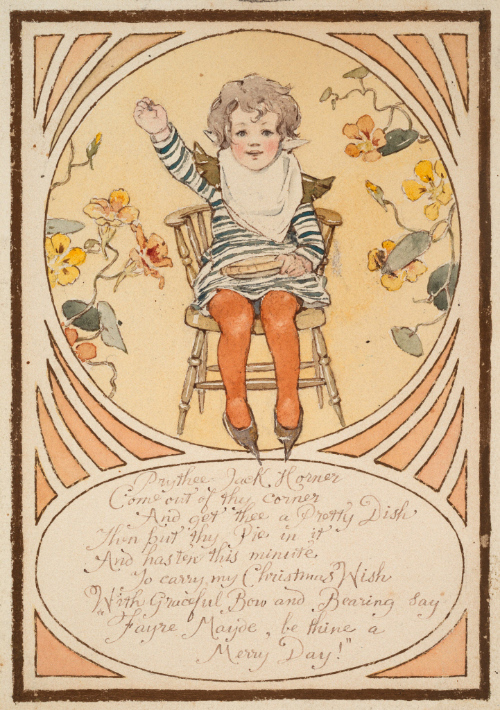 Prythee Jack Horner
Come out of thy corner
And get thee a Pretty Dish
Then put thy Pie in it
And hasten this minute,
To carry my Christmas Wish
With Graceful Bow and Bearing say
"Fayre Mayde, be thine a
Merry Day!"